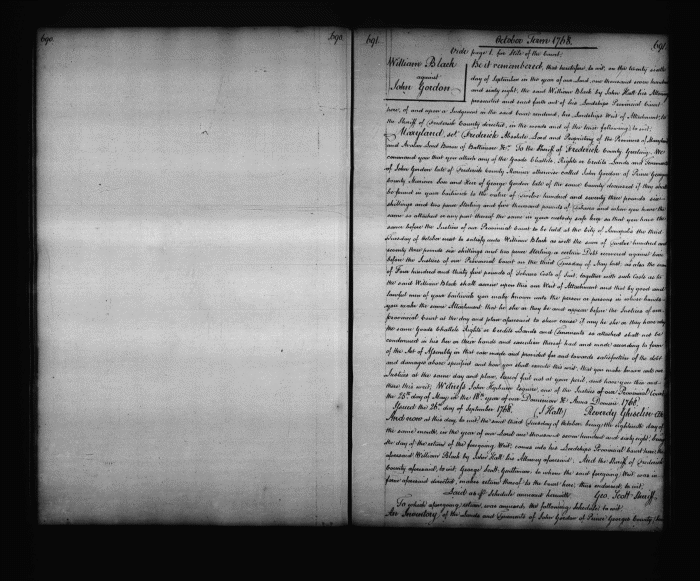 690.
690.
691.
October Term 1768.
691.
Vide page 1. for Stile of the Court.
William Black
against
John Gordon
Be it remembered, that heretofore, to wit, on the twenty sixth
day of September in the year of our Lord, one thousand seven hundred
and sixty eight, the said William Black by John Hall his Attorney
prosecuted and sued forth out of his Lordships Provincial Court
here, of and upon a Judgment in the said Court rendered, his Lordships Writ of Attachment, to
the Sheriff of Frederick County directed, in the words and of the tenor following; to wit;
Maryland, sct. Frederick Absolute Lord and Proprietary of the Provinces of Maryland
and Avalon Lord Baron of Baltimore &c. To the Sheriff of Frederick County Greeting. We
command you that you attach any of the Goods Chattels, Rights or Credits Lands and Tenements
of John Gordon late of Frederick County Farmer otherwise called John Gordon of Prince Georges
County Son and Heir of George Gordon late of the same County deceased if they shall
be found in your bailiwick to the value of Twelve hundred and seventy three pounds six
shillings and ten pence Sterling and five thousand pounds of Tobacco and when you have the
same so attached or any part thereof the same in your custody safe keep so that you have the
same before the Justices of our Provincial Court to be held at the City of Annapolis the third
Tuesday of October next to satisfy unto William Black as well the sum of Twelve hundred and
seventy three pounds six shillings and ten pence Sterling a certain Debt recovered against him
before the Justices of our Provincial Court on the third Tuesday of May last, as also the sum
of Four hundred and thirty five pounds of Tobacco Costs of Suit, together with such Costs as to
the said William Black shall accrue upon this our Writ of Attachment and that by good and
lawful men of your bailiwick you make known unto the person or persons in whose hands
you make the same Attachment that he she or they be and appear before the Justices of our
provincial Court at the day and place aforesaid to shew cause if any he she or they have why
the same Goods Chattels Rights or Credits Lands and Tenements so attached shall not be
condemned in his her or their hands and execution thereof had and made according to form
of the Act of Assembly in that case made and provided for and towards satisfaction of the debt
and damages above specified and how you shall execute this writ, that you make known unto our
Justices at the same day and place, hereof fail not at your peril, and have you then and
there this writ; Witness John Hepburn Esquire, one of the Justices of our Provincial Court
the 25th day of May in the 18th year of our Dominion &c. Anno Domini 1768.
Issued the 26th day of September 1768. (J Hall) Reverdy Ghiselin Clk
And now at this day to wit; the said third Tuesday of October; being the eighteenth day of
the same month, in the year of our Lord one thousand seven hundred and sixty eight; being
the day of the return of the foregoing Writ; comes into his Lordships Provincial Court here, the
aforesaid William Black by John Hall his Attorney aforesaid. And the Sheriff of Frederick
County aforesaid, to wit; George Scott, Gentleman; to whom the said foregoing Writ, was in
form aforesaid directed, makes return thereof to the Court here, thus endorsed; to wit;
Laid as p Schedule annexed herewith Geo. Scott Sheriff.
To which aforegoing return, was annexed, the following Schedule; to wit;
An Inventory, of the Lands and Tenements of John Gordon of Prince Georges County,